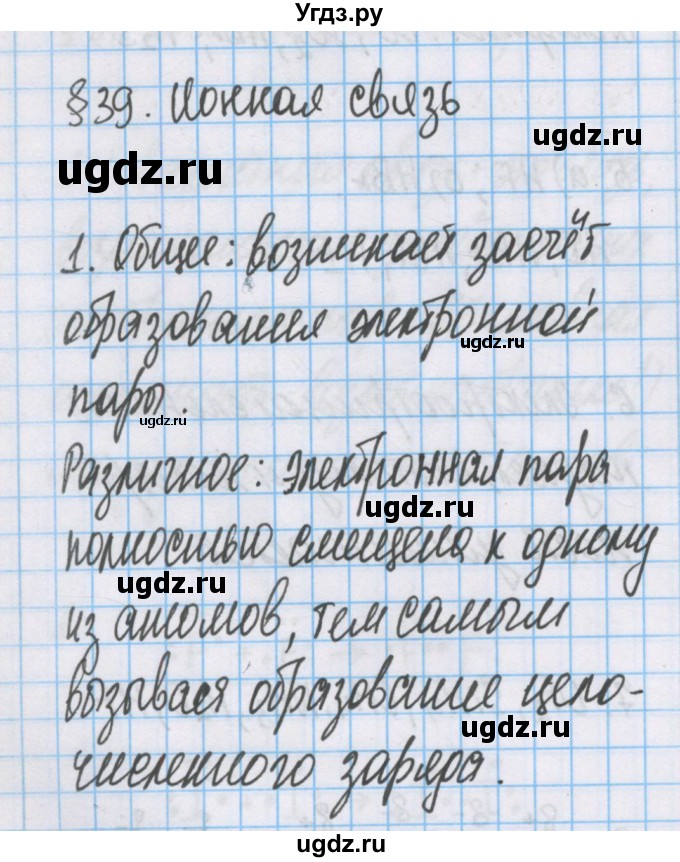 Угдз.ру
§39. Ионная связь
ugdz.ru
1. Общее: возникает засчёт
образования электронной
ugdz.ru
пары.
ugdz.ru
Различное: электронная пара
ugdz.ru
полностью смещена к одному
ugdz.ru
из атомов, тем самым
вызывася образование цело-
ugdz.ru
численного заряда.
Угдз.ру